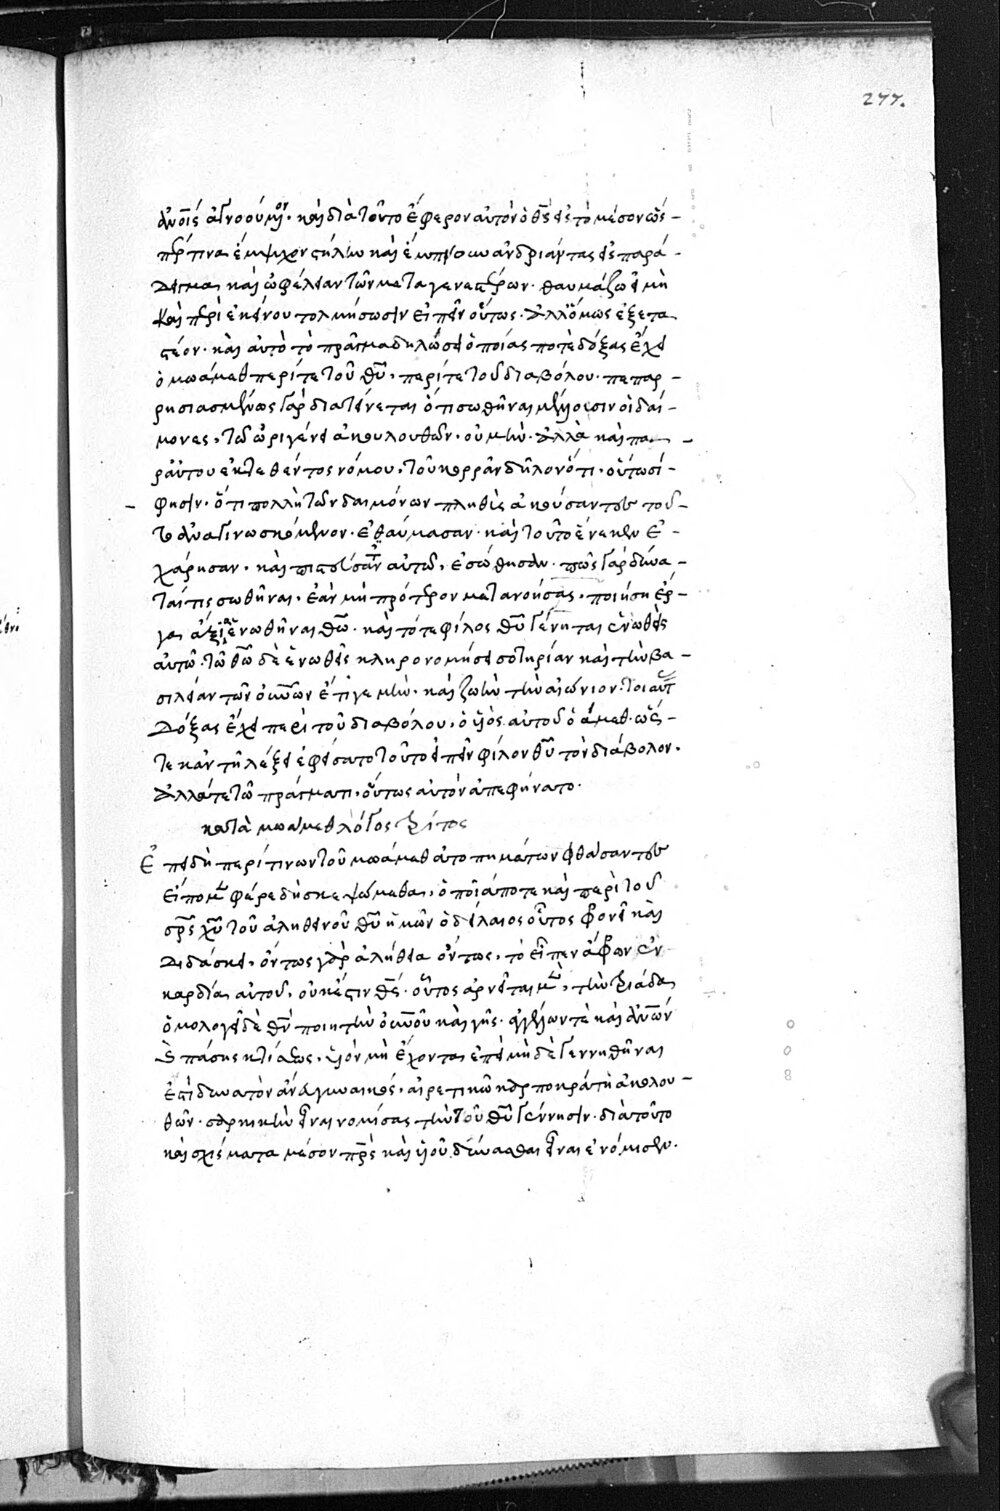 277.
ἀνοῖς ἀγνοούμενον· καὶ διὰ τοῦτο ἔφερον αὐτὸν ὁ θς εἰς τὸ μέσον ὡς
πρ τινα ἔμψυχον στήλην καὶ ἔμπνουν ἀνδριάντα εἰς παρά-
δειγμα καὶ ὠφέλειαν τῶν μεταγενεστέρων· θαυμάζω εἰ μὴ
καὶ περὶ ἐκείνου τολμήσωσιν εἰπεῖν οὕτως· ἀλλ' ὅμως ἐξετα
στέον· καὶ αὐτὸ τὸ πρᾶγμα δηλώσει ὁποίας ποτὲ δόξας ἔχει
ὁ μωάμεθ περί τε τοῦ θυ, περί τε τοῦ διαβόλου· πεπαρ-
ρησιασμένως γὰρ διατείνεται ὅτι σωθῆναι μέλλουσιν οἱ δαί-
μονες, τῷ ὠριγένει ἀκολουθῶν· οὐ μὴν ἀλλὰ καὶ πα-
ρ' αὐτοῦ ἐκτεθέντος νόμου, τοῦ κορρὰν δηλονότι· οὑτωσί
φησιν· ὅτι πολλὴ τῶν δαιμόνων πληθὺς ἀκούσαντες τοῦ-
το ἀναγινωσκόμενον· ἐθαύμασαν· καὶ τούτου ἕνεκεν ἐ-
χάρησαν, καὶ πιστεύσαντες αὐτῷ, ἐσώθησαν· πῶς γὰρ δύνα-
ταί τις σωθῆναι, ἐὰν μὴ πρότερον μετανοήσας, ποιήσῃ ἔρ-
γα ἄξια ἑνωθῆναι θω· καὶ τότε φίλος θυ γένηται ἑνωθεὶς
αὐτῷ· τῷ θω δὲ ἑνωθεὶς κληρονομήσει σωτηρίαν καὶ τὴν βα-
σιλείαν τῶν οὐνῶν ἔτι γε μὴν, καὶ ζωὴν τὴν αἰώνιον· τοιαύτ
δόξας ἔχει περὶ τοῦ διαβόλου, ὁ υἱὸς αὐτοῦ ὁ ἄμεθ· ὡς-
τε κἂν τῇ λέξει ἐφείσατο τοῦτο εἰπεῖν φίλον θυ τὸν διάβολον·
ἀλλά γε τῷ πράγματι, οὕτως αὐτὸν ἀπεφήνατο·
κατὰ μωάμεθ λόγος τρίτος
Ἐπειδὴ περί τινων τοῦ μωάμεθ ἀτοπημάτων φθάσαντες
εἴπομεν φέρε δὴ σκεψώμεθα, ὁποῖά ποτε καὶ περὶ τοῦ
σρς χυ τοῦ ἀληθινοῦ θυ ἡμῶν ὁ δείλαιος οὗτος φρονεῖ καὶ
διδάσκει, ὄντως γὰρ ἀλήθεια ὄντως, τὸ εἶπεν ἄφρων ἐν
καρδίᾳ αὐτοῦ, οὐκ ἔστιν θς· οὗτος ἀρνεῖται μὲν, τὴν τριάδα
ὁμολογεῖ δὲ θν ποιητὴν οὐνοῦ καὶ γῆς· ἀγγέλων τὲ καὶ ἀνῶν
πάσης κτίσεως, υἱὸν μὴ ἔχοντα ἐπεὶ μηδὲ γεννηθῆναι
ἐστὶ δυνατὸν ἄνευ γυναικός, αἱρετικῷ καρποκράτῃ ἀκολου-
θῶν· σαρκικὴν εἶναι νομίσας τὴν τοῦ θυ γέννησιν· διὰ τοῦτο
καὶ σχίσματα μέσον πρς καὶ υἱοῦ δύνασθαι εἶναι ἐνόμισεν·